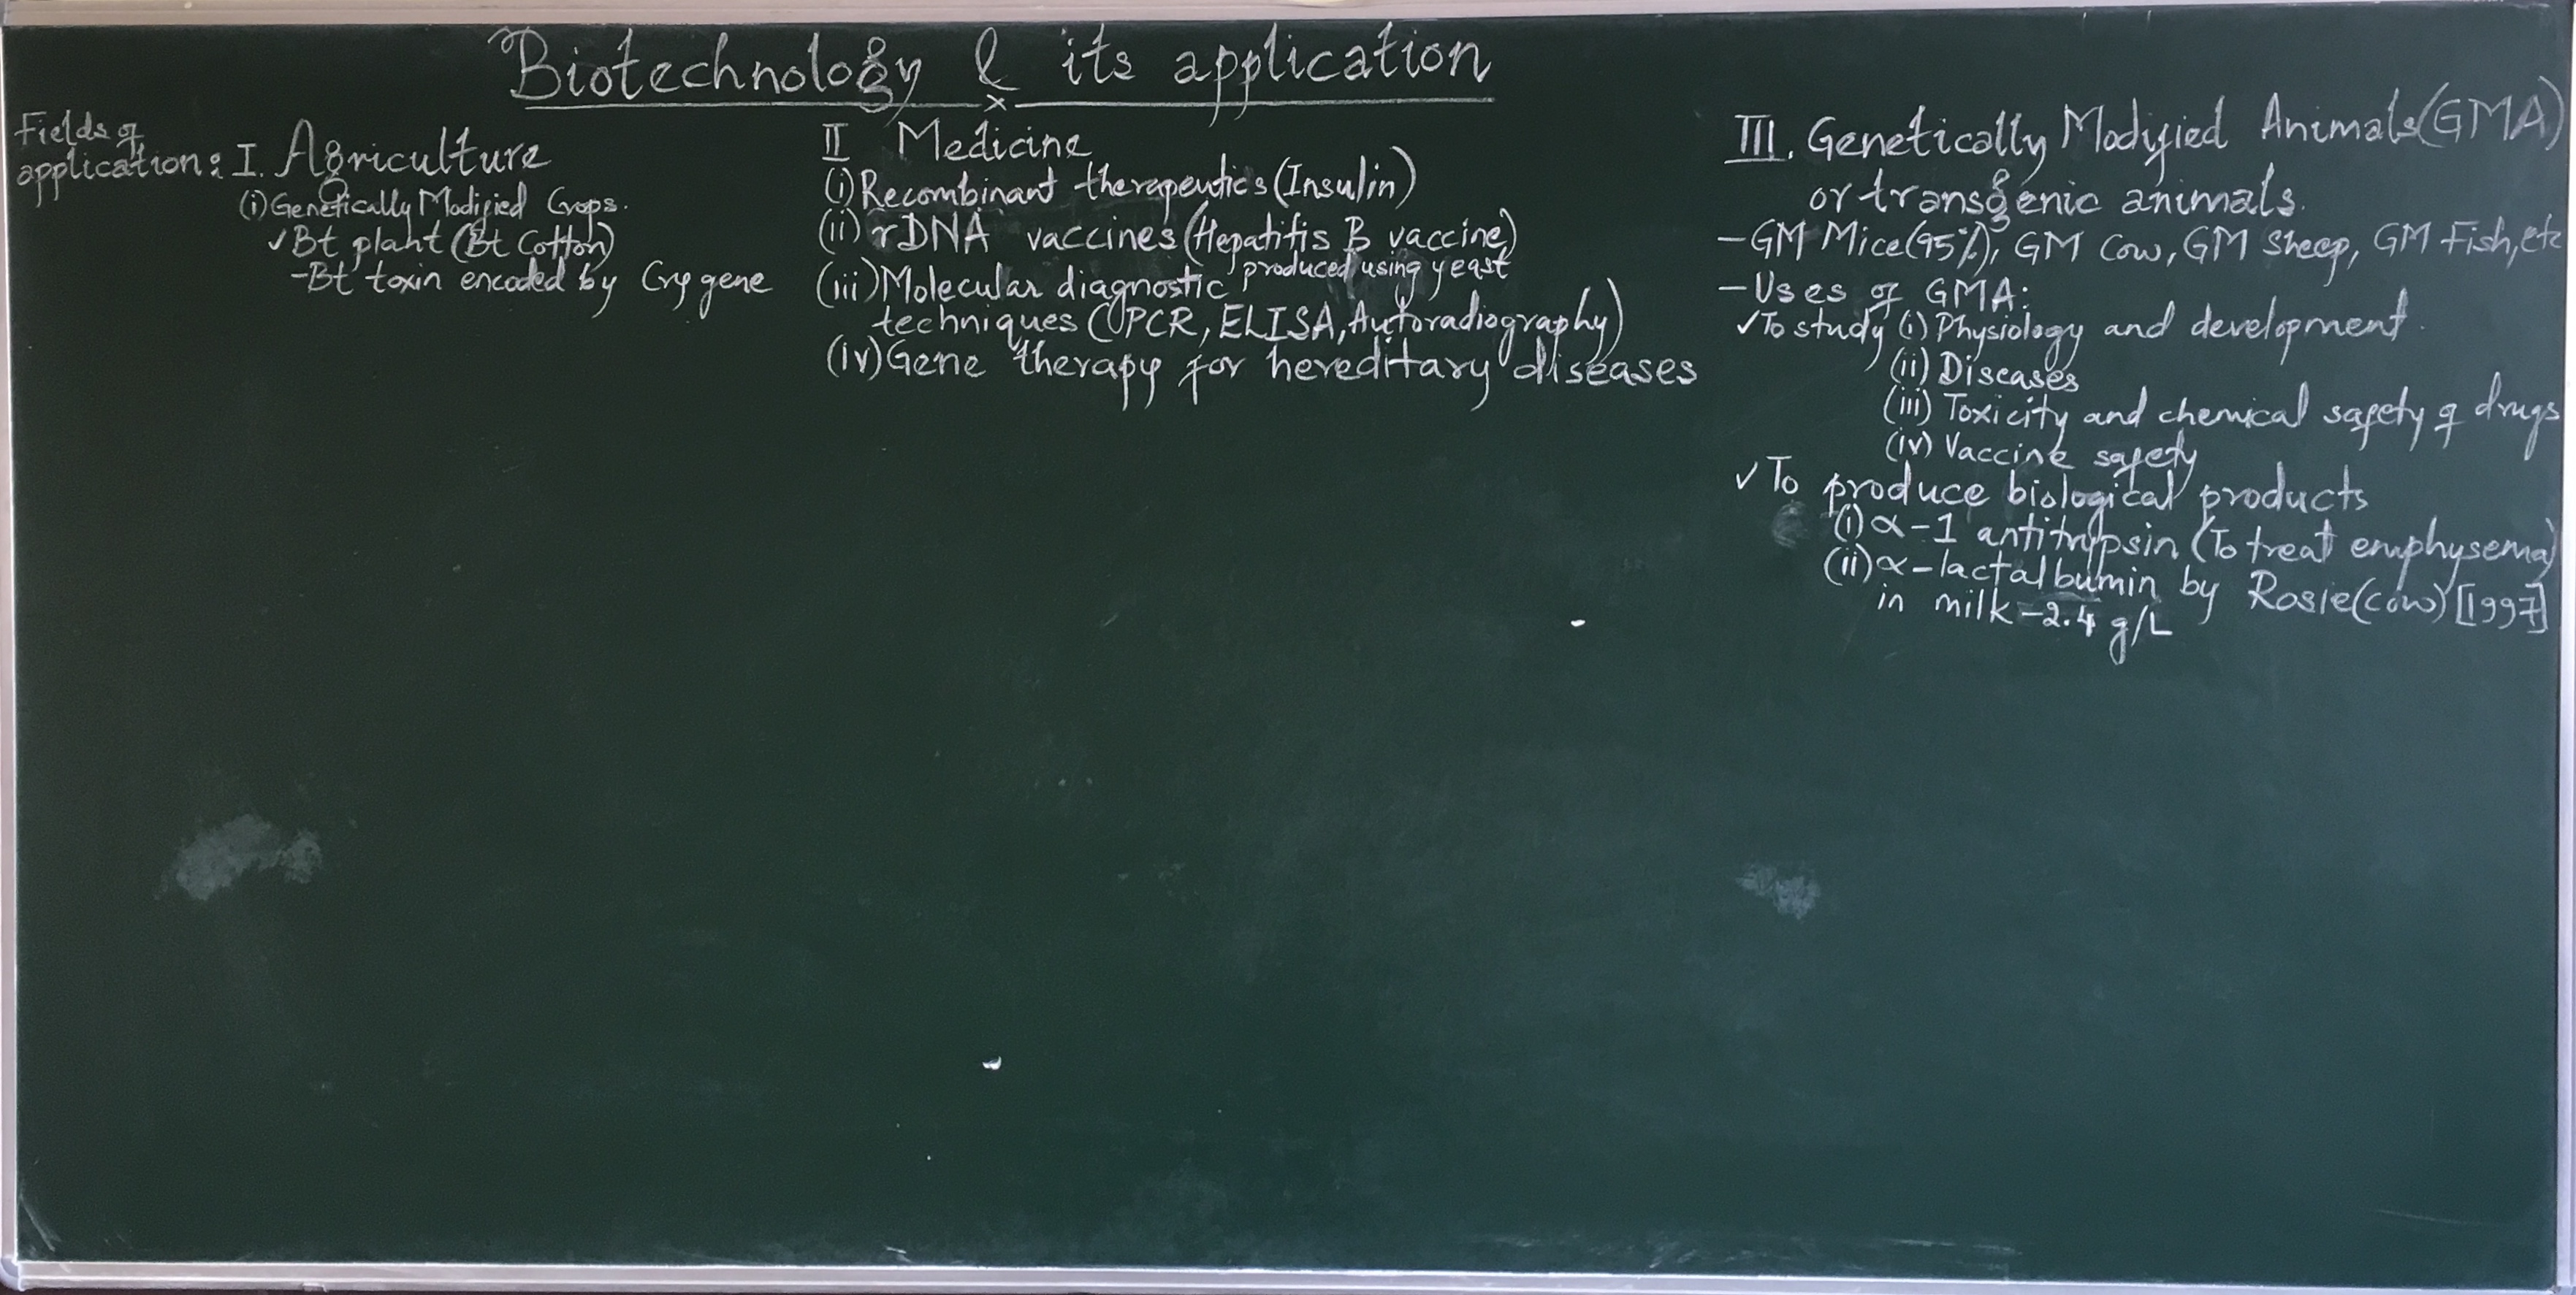 Biotechnology & its application
Fields of
application:
I. Agriculture
(i) Genetically Modified Crops.
✓Bt plant (Bt Cotton)
-Bt toxin encoded by Cry gene
II Medicine
(i) Recombinant therapeutics (Insulin)
(ii) rDNA vaccines (Hepatitis B vaccine)
produced using yeast
(iii) Molecular diagnostic
techniques (PCR, ELISA, Autoradiography)
(iv) Gene therapy for hereditary diseases
III. Genetically Modified Animals (GMA)
or transgenic animals.
-GM Mice (95%), GM Cow, GM Sheep, GM Fish, etc
-Uses of GMA:
✓To study (i) Physiology and development.
(ii) Diseases
(iii) Toxicity and chemical safety of drugs
(iv) Vaccine safety
✓To produce biological products
(i) α-1 antitrypsin (To treat emphysema)
(ii) α-lactalbumin by Rosie (cow) [1997]
in milk -2.4 g/L